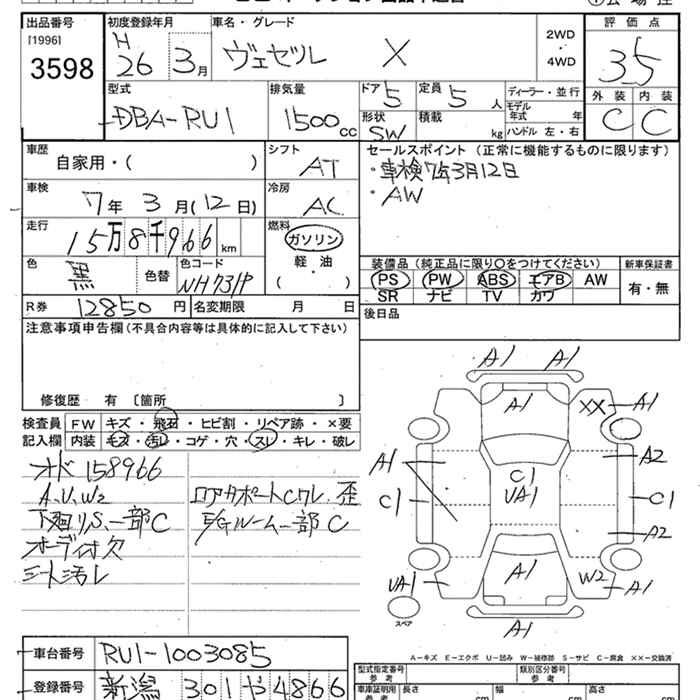 出品番号
[1996]
3598
初度登録年月
H 26 3月
車名・グレード
ヴェゼル X
2WD
・
4WD
評価点
3.5
外装 内装
C C
型式
DBA-RU1
排気量
1500cc
ドア 5
形状 SW
定員 5人
積載 kg
ディーラー・並行
モデル年式 年
ハンドル 左・右
車歴
自家用・( )
シフト
AT
車検
7年 3月(12日)
冷房
AC
走行
15万8千966km
燃料
ガソリン
軽・油
( )
色
黒
色替
色コード
NH731P
R券 12850円
名変期限 月 日
セールスポイント(正常に機能するものに限ります)
・車検7年3月12日
・AW
装備品(純正品に限り○をつけてください)
PS PW ABS エアB AW
SR ナビ TV カワ
新車保証書
有・無
後日品
注意事項申告欄(不具合内容等は具体的に記入して下さい)
修復歴 有〔箇所 〕
検査員記入欄
FW キズ・飛石・ヒビ割・リペア跡・×要
内装 キズ・汚レ・コゲ・穴・スレ・キレ・破レ
オド158966
A、U、W2
下廻りS、一部C
オーディオ欠
シート汚レ
ロアサポートCワレ、歪
E/Gルーム一部C
A1 A1
A1
XX A1
A1
A2
C1
C1
UA1
C1
A2
UA1
A1
W2 A1
A1
スペア
A-キズ E-エクボ U-凹み W-補修跡 S-サビ C-腐食 ××-交換済
車台番号 RU1-1003085
登録番号 新潟 301 や 4866
型式指定番号 参考
類別区分番号 参考
車庫証明用 参考
長さ cm
幅 cm
高さ cm